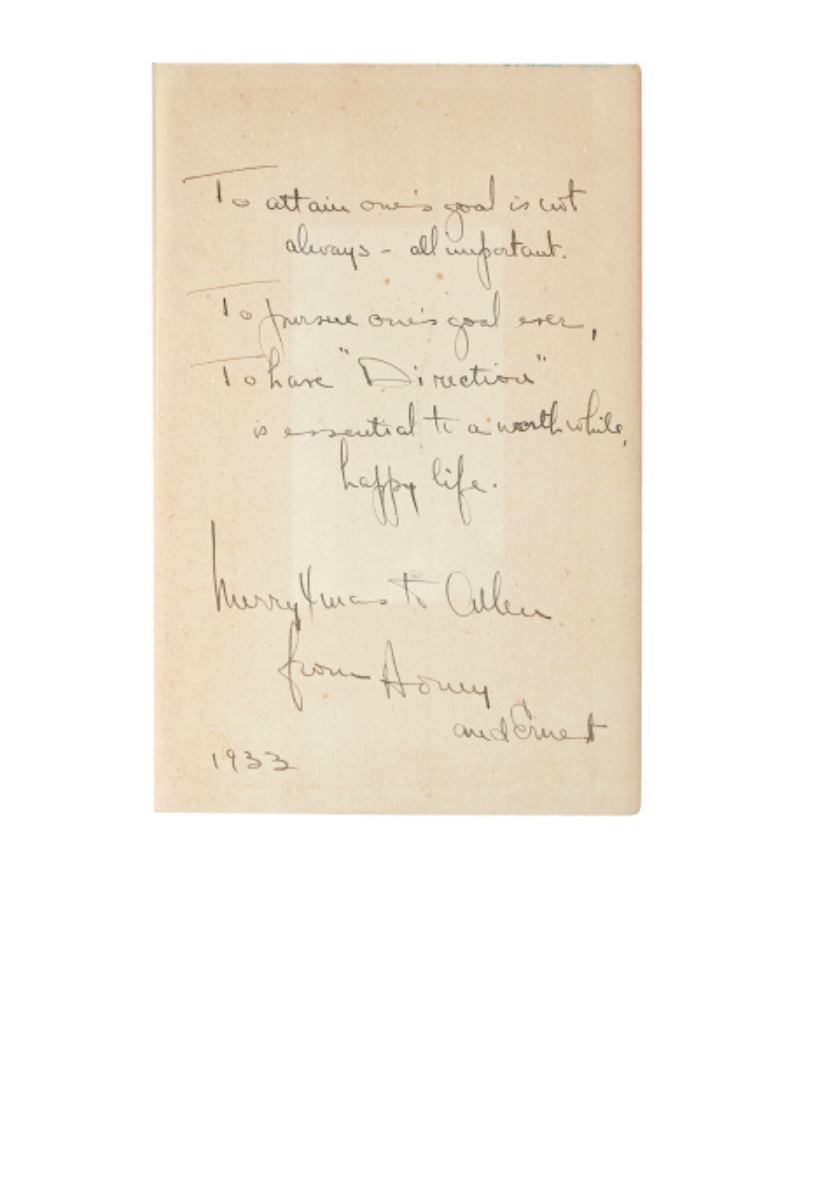 To attain one's goal is not
always - all important.
To pursue one's goal ever,
To have "Direction"
is essential to a worthwhile,
happy life.
Merry Xmas to Allen
from Honey
and Ernest
1933